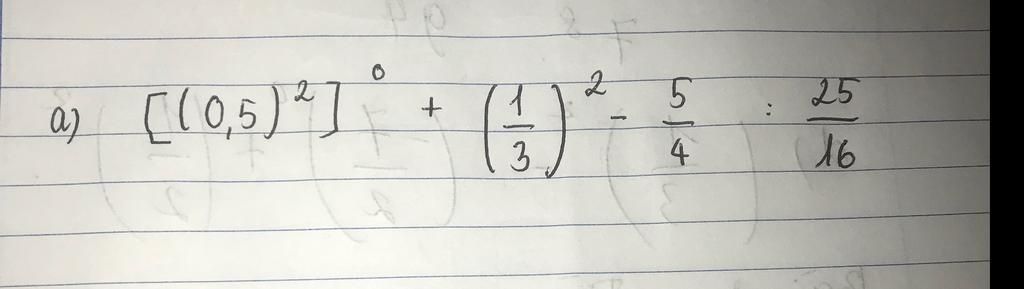 a) [(0,5)^2]^0 + (1/3)^2 - 5/4 : 25/16